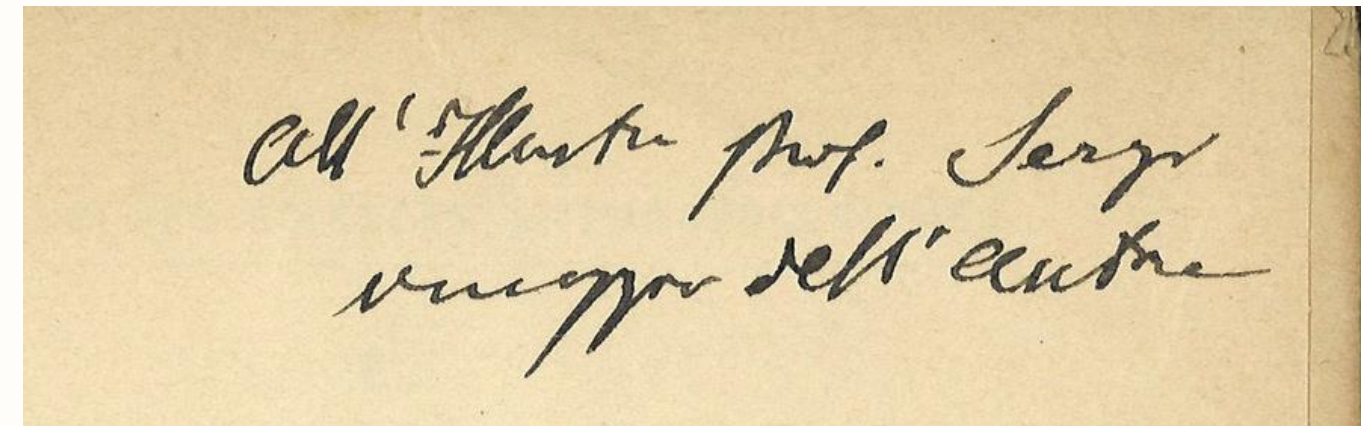 All'Illustre Prof. Sergi
omaggio dell'autore